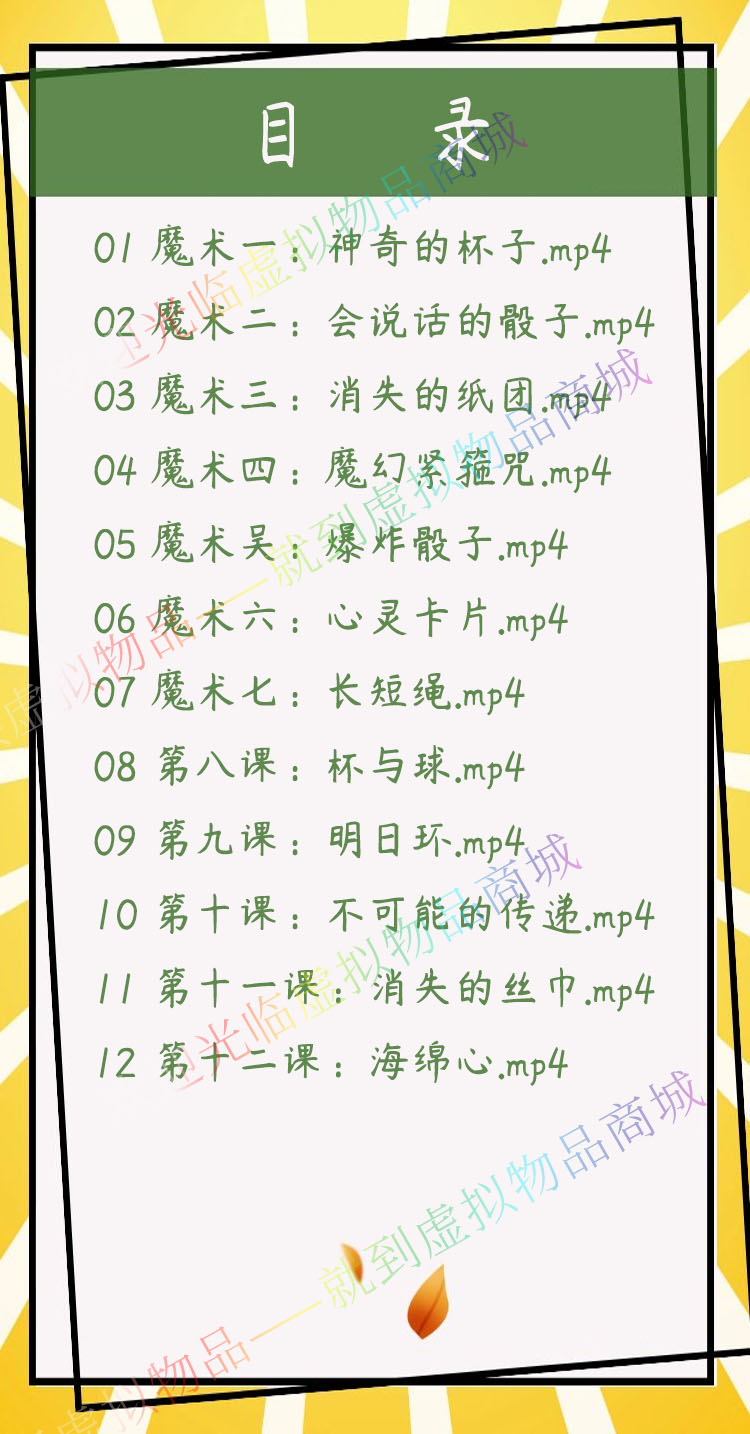 目 录
01 魔术一：神奇的杯子.mp4
02 魔术二：会说话的骰子.mp4
03 魔术三：消失的纸团.mp4
04 魔术四：魔幻紧箍咒.mp4
05 魔术吴：爆炸骰子.mp4
06 魔术六：心灵卡片.mp4
07 魔术七：长短绳.mp4
08 第八课：杯与球.mp4
09 第九课：明日环.mp4
10 第十课：不可能的传递.mp4
11 第十一课：消失的丝巾.mp4
12 第十二课：海绵心.mp4
迎光临虚拟物品商城
虚拟物品——就到虚拟物品商城
迎光临虚拟物品商城
虚拟物品——就到虚拟物品商城